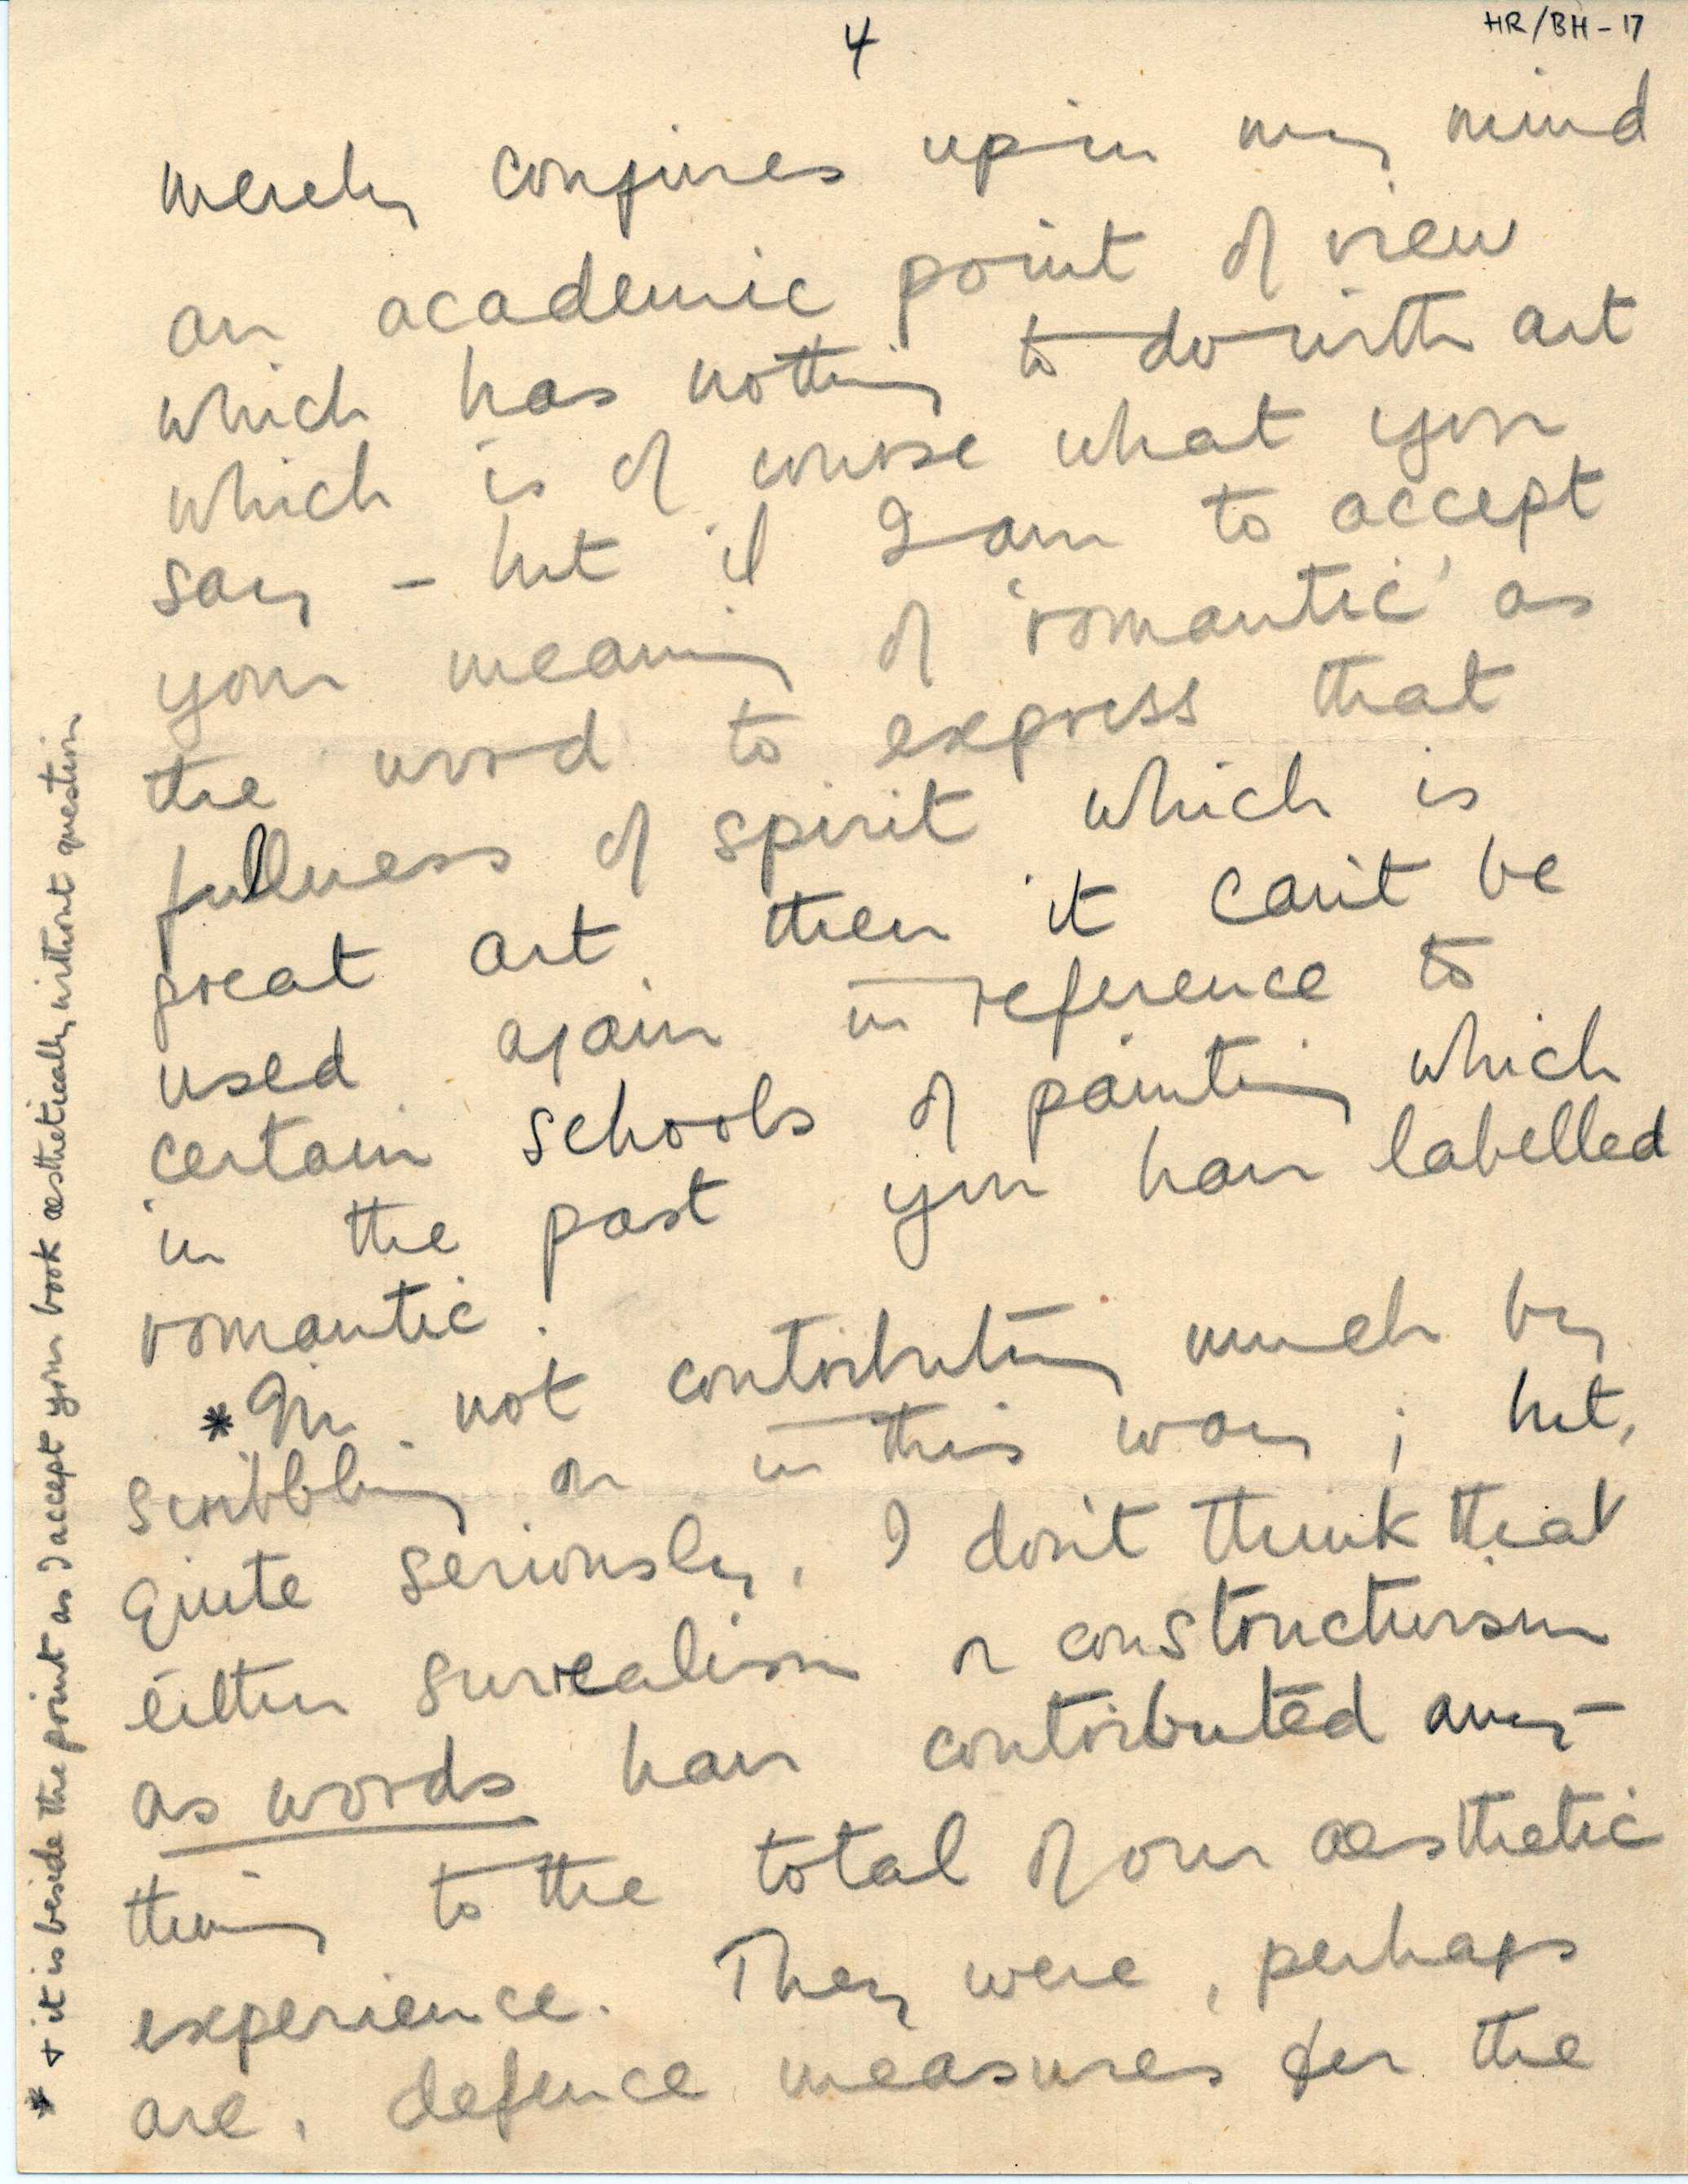 4
HR/BH-17
merely conjures up in my mind
an academic point of view
which has nothing to do with art
which is of course what you
say – but if I am to accept
your meaning of 'romantic' as
the word to express that
fullness of spirit which is
great art then it can't be
used again in reference to
certain schools of painting which
in the past you have labelled
romantic.
*I'm not contributing much by
scribbling on in this way; but,
quite seriously, I don't think that
either surrealism or constructivism
as words have contributed any-
thing to the total of our æsthetic
experience. They were, perhaps
are, defence measures for the
* + it is beside the point as I accept your book æsthetically without question